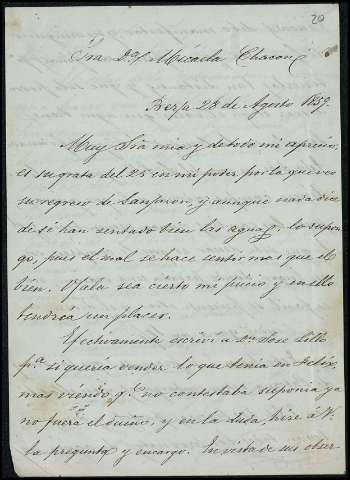 20
Sra Dª Micaela Chacon
Berja 28 de Agosto 1859.
Muy Sra mia y de todo mi aprecio,
es su grata del 25 en mi poder por la que veo
su regreso de Lanjaron, y aunque nada dice
de si han sentado bien las aguas, lo supon
go, pues el mal se hace sentir mas que el
bien. Ojala sea cierto mi juicio y en ello
tendria un placer.
Efectivamente escrivi a Dn Jose Lillo
pª. si queria vender lo que tenia en Felix,
mas viendo qe. no contestaba suponia ya
no fuera el dueño, y en la duda, hice á V.
la pregunta y encargo. En vista de sus obser-